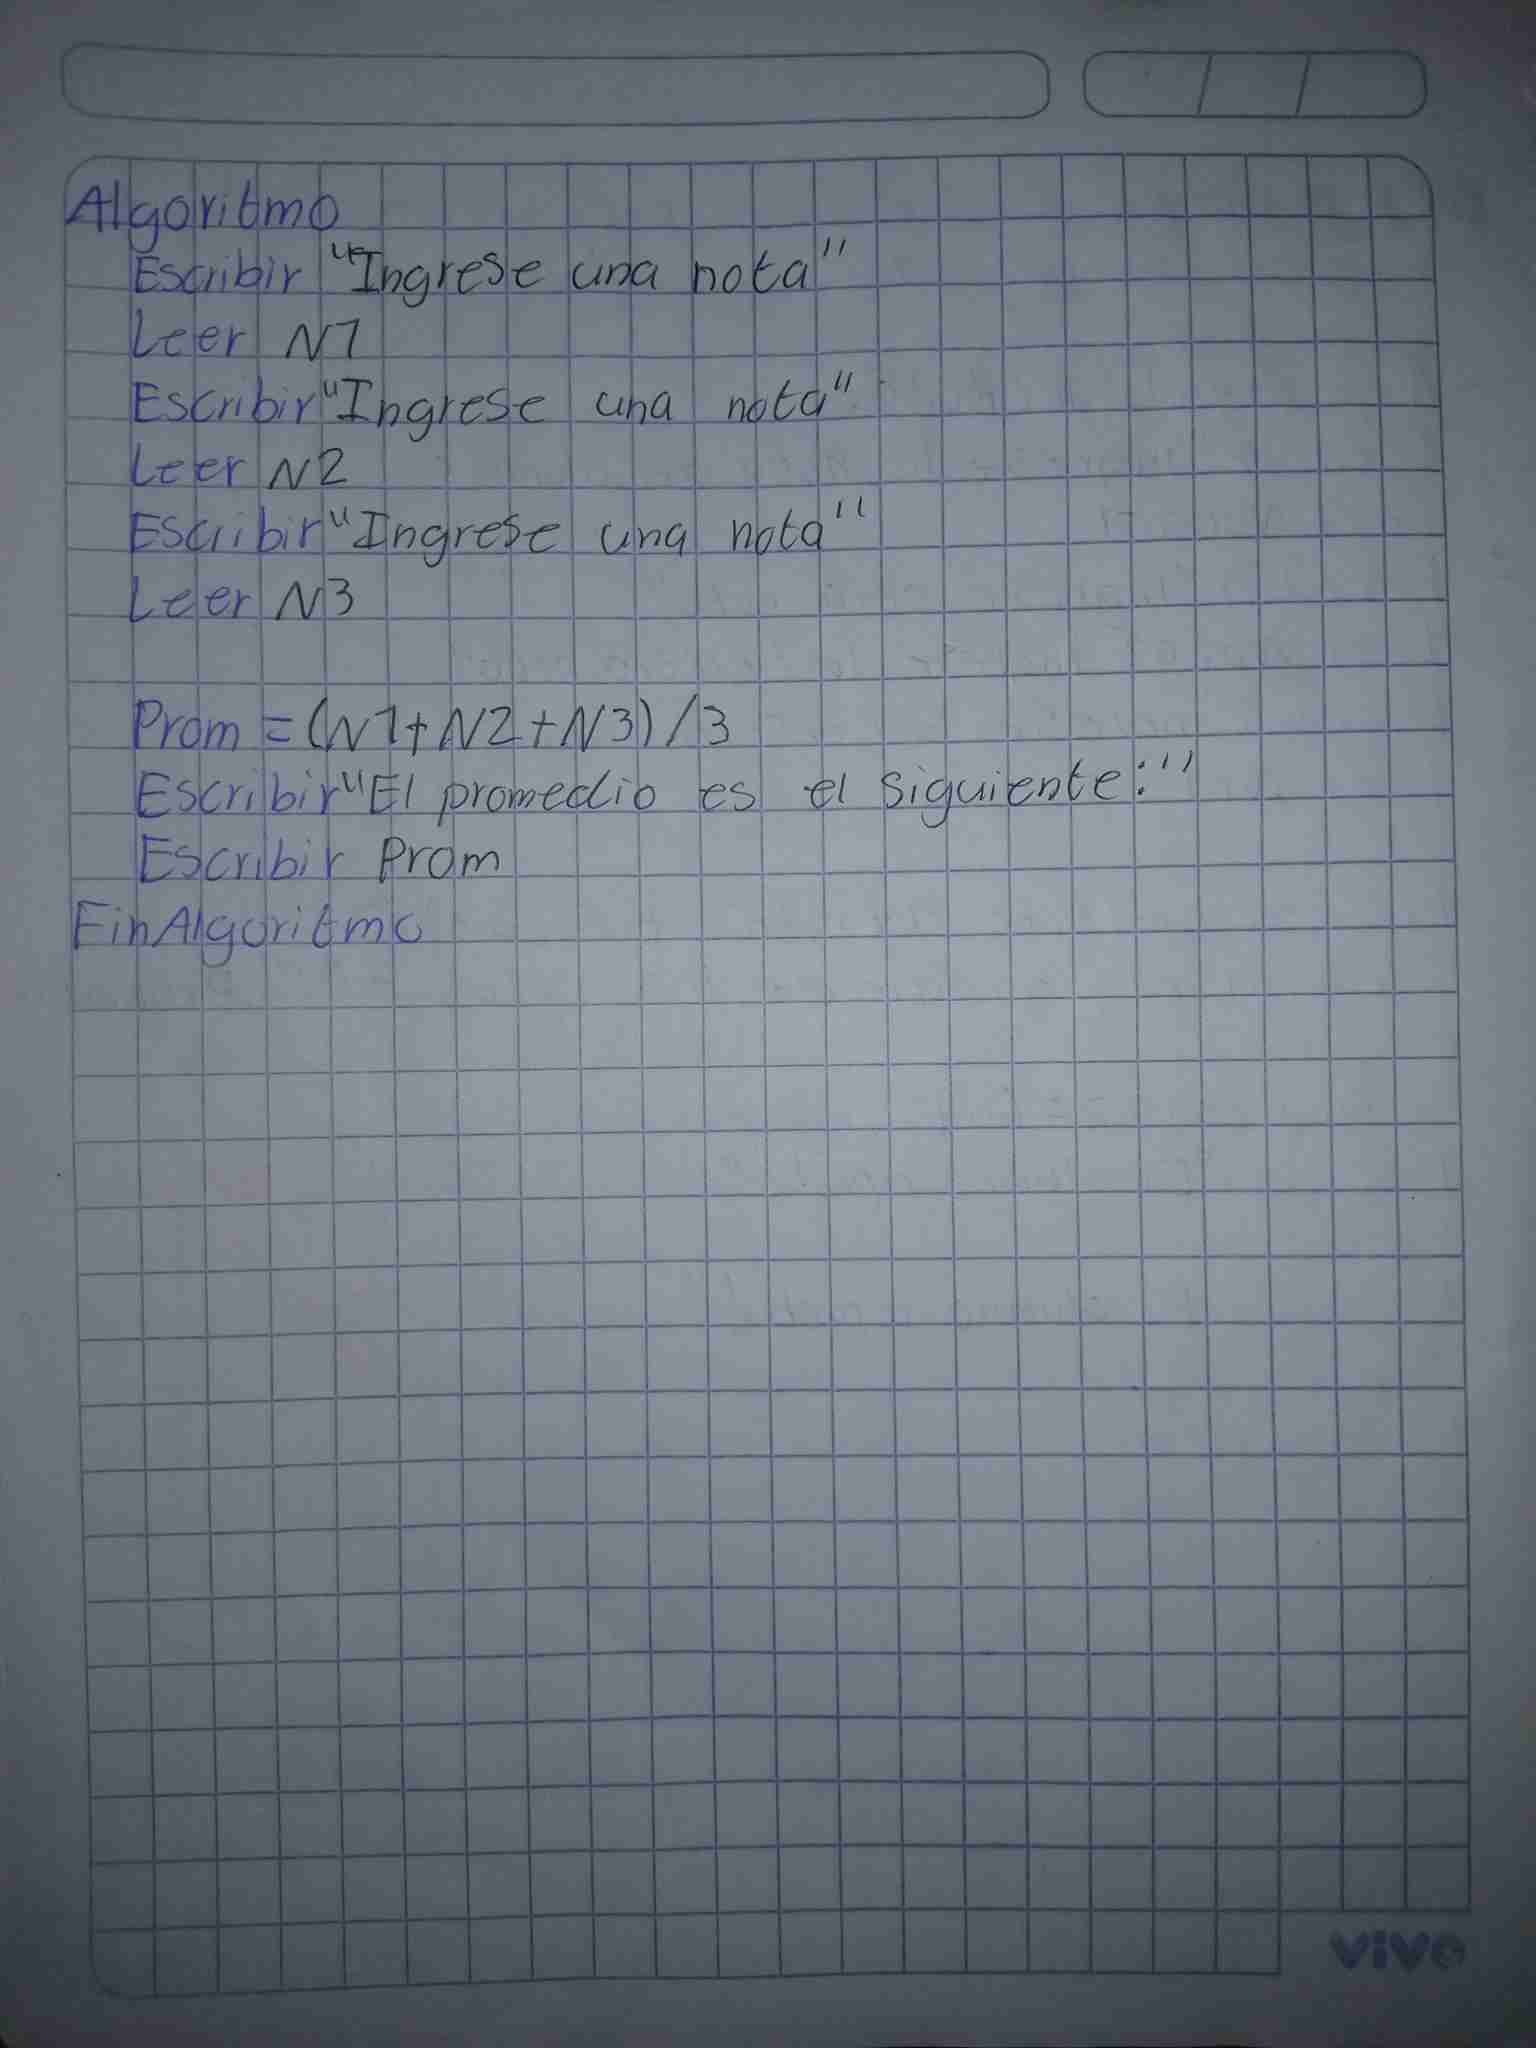 Algoritmo
Escribir "Ingrese una nota"
Leer N1
Escribir "Ingrese una nota"
Leer N2
Escribir "Ingrese una nota"
Leer N3
Prom = (N1+N2+N3)/3
Escribir "El promedio es el siguiente:"
Escribir Prom
FinAlgoritmo
vive